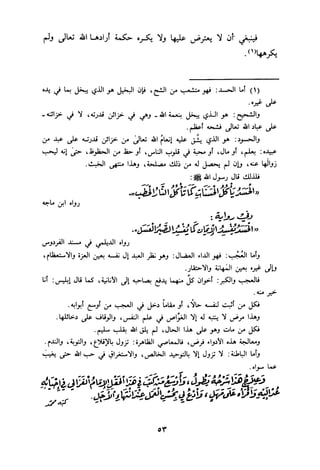 فينبغي أن لا يعترض عليها ولا يكره حكمة أرادها الله تعالى ولم
يكرهها(١).
(١) أما الحسد: فهو متشعب من الشح، فإن البخيل الذي هو يبخل بما في يده
على غيره.
والشحيح: هو الذي يبخل بنعمة الله - وهي في خزائن قدرته، لا في خزائنه -
على عباد الله تعالى فشحه أعظم.
والحسود: هو الذي يشق عليه إنعام الله تعالى من خزائن قدرته على عبد من
عبيده: بعلم، أو مال، أو محبة في قلوب الناس، أو حظ من الحظوظ، حتى إنه ليحب
زوالها عنه، وإن لم يحصل له من ذلك مصلحة، وهذا منتهى الخبث.
فلذلك قال رسول الله ﷺ:
«الحسد يأكل الحسنات كما تأكل النار الحطب»
رواه ابن ماجه
وفي رواية:
رواه الديلمي في مسند الفردوس
وأما العُجْب: فهو الداء العضال: وهو نظر العبد إلى نفسه بعين العزة والاستعظام،
وإلى غيره بعين المهانة والاحتقار.
فالعجب والكبر: أخوان كلٌ منهما يدفع بصاحبه إلى الأنانية، كما قال إبليس: أنا
خير منه.
فكل من أثبت لنفسه حالاً، أو مقاماً دخل في العجب من أوسع أبوابه.
وهذا مرض لا ينتبه له إلا الغوّاص في علم النفس، والوقاف على دخائلها.
فكل من مات وهو على هذا الحال، لم يلق الله بقلب سليم.
ومعالجة هذه الأدواء فرض، فالمعاصي الظاهرة: تزول بالإقلاع، والتوبة، والندم.
وأما الباطنة: لا تزول إلا بالتوحيد الخالص، والاستغراق في حب الله حتى يغيب
عما سواه.
٥٣